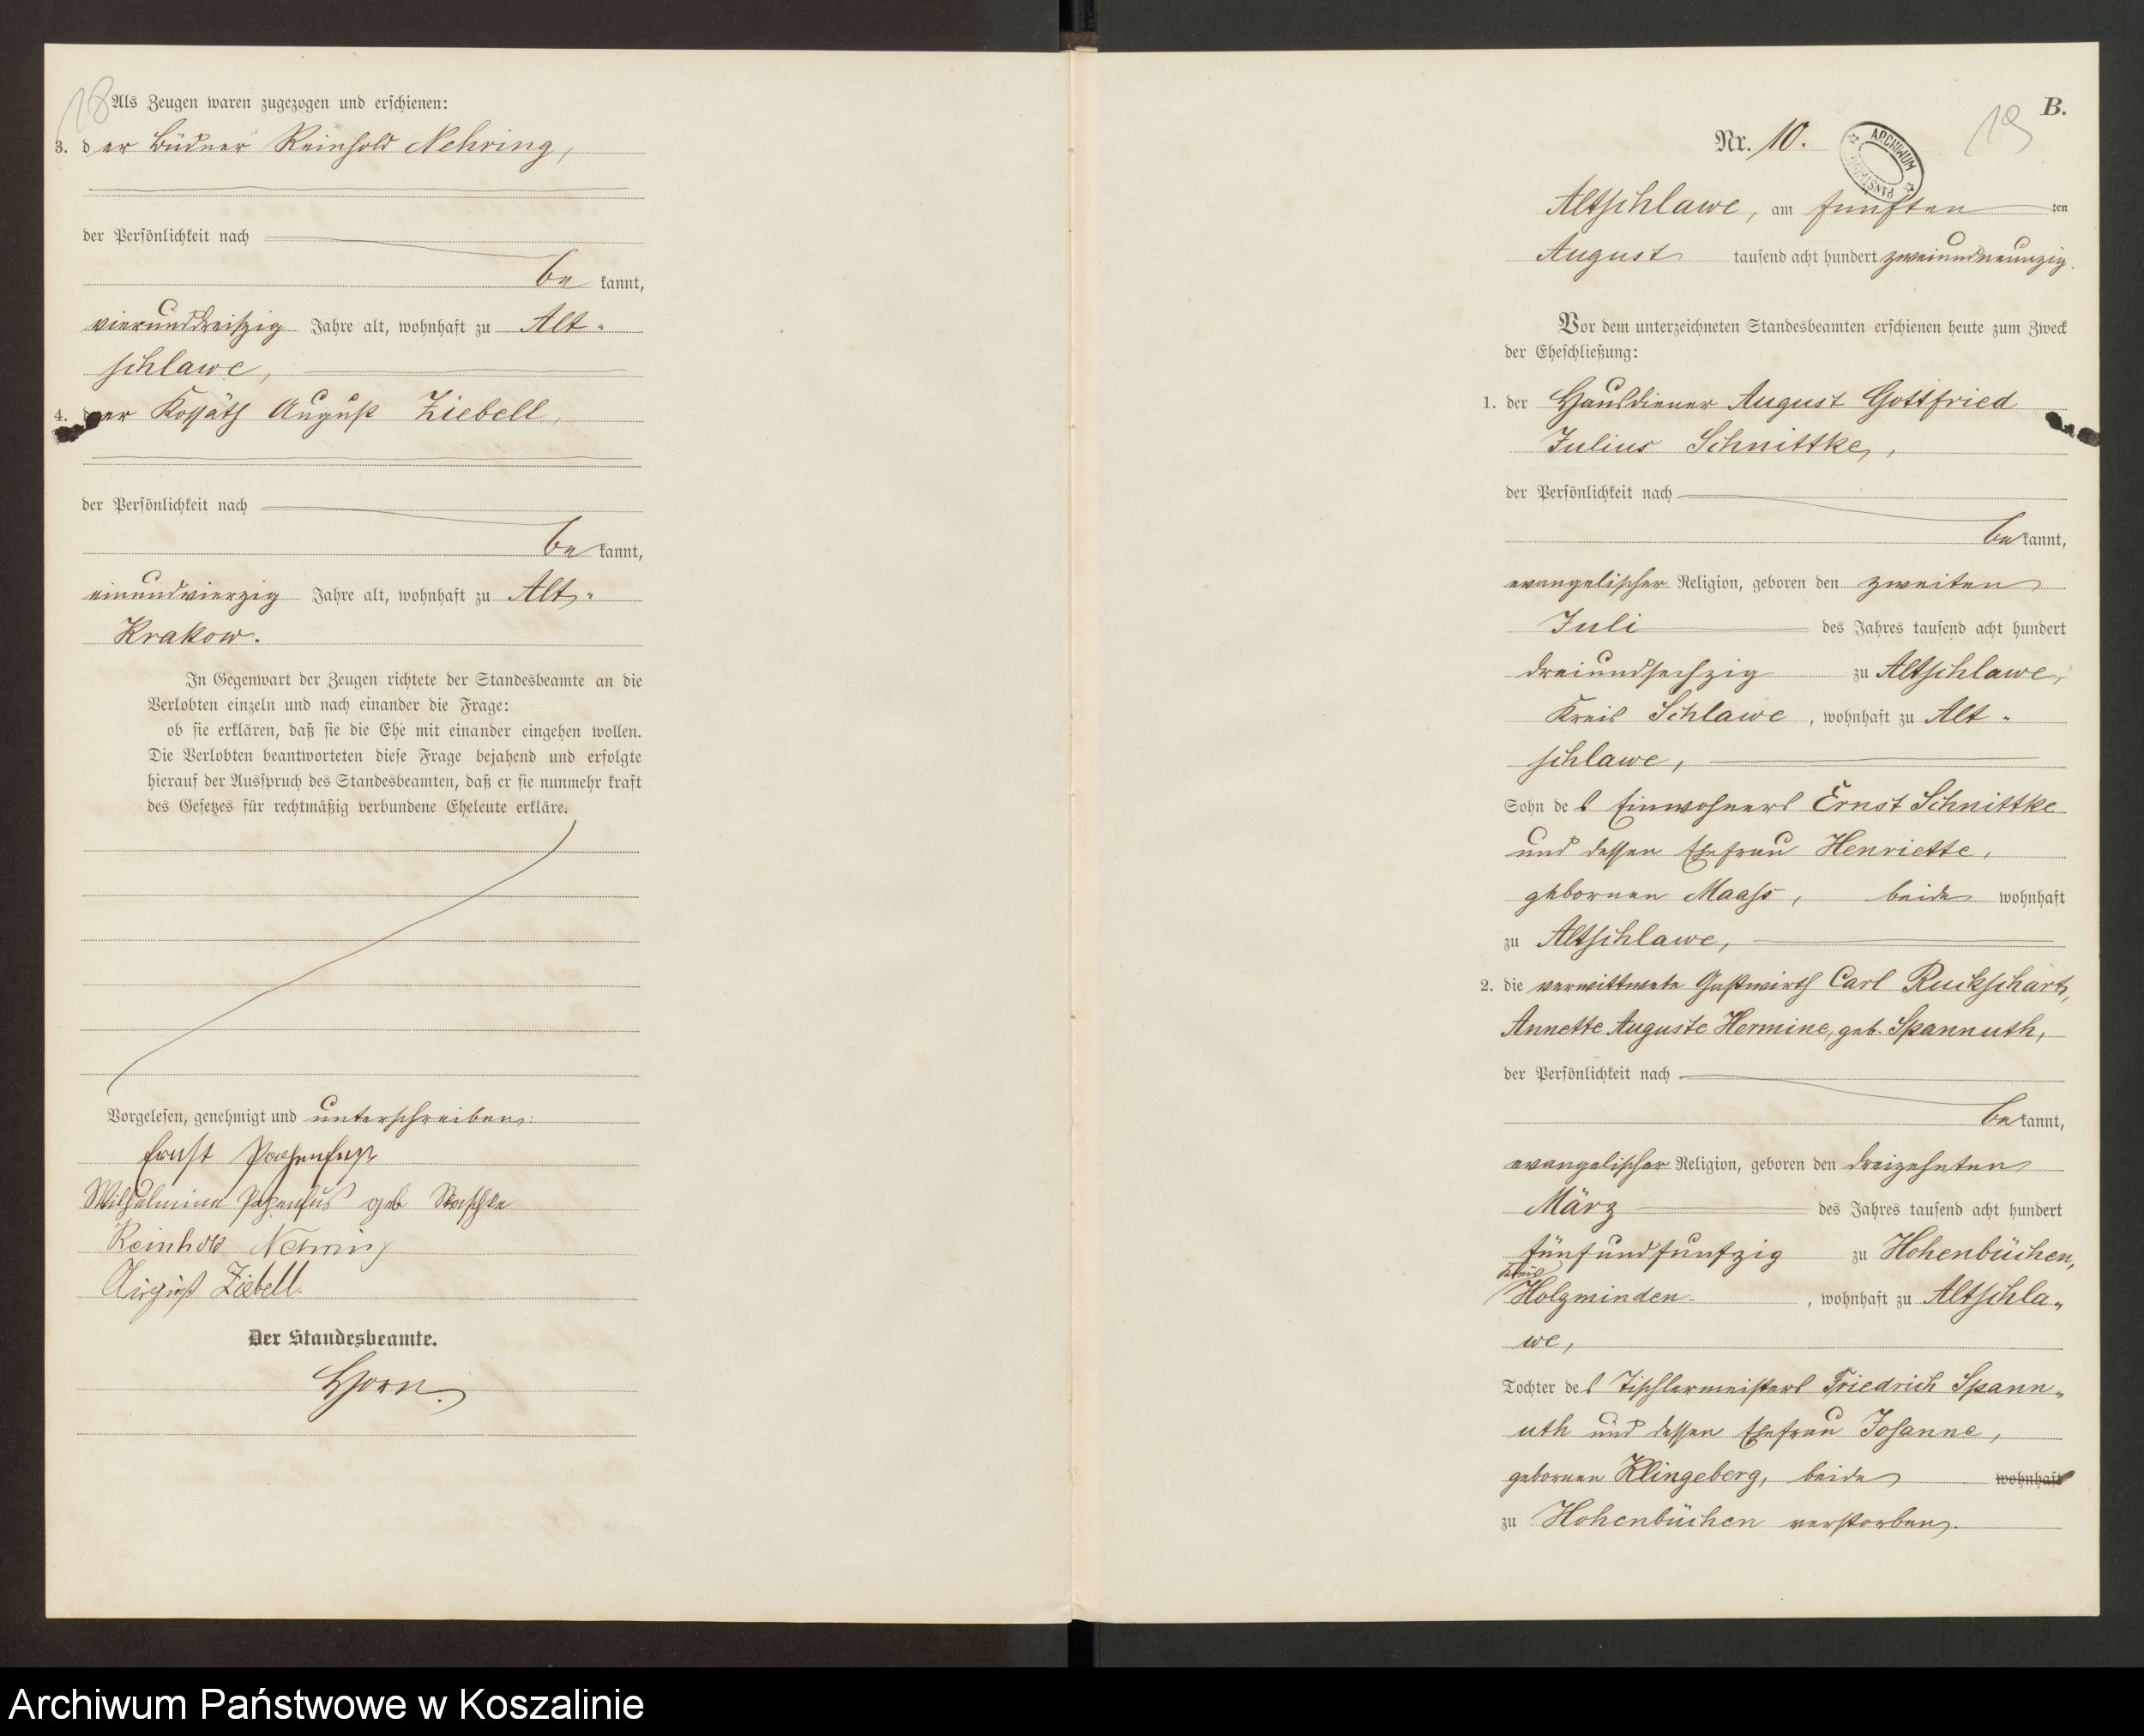 18
Als Zeugen waren zugezogen und erschienen:
3. der Büdner Reinhold Nehring,
der Persönlichkeit nach
be kannt,
vierunddreißig Jahre alt, wohnhaft zu Alt-
schlawe,
4. der Kossäth August Ziebell,
der Persönlichkeit nach
be kannt,
einundvierzig Jahre alt, wohnhaft zu Alt-
Krakow.
In Gegenwart der Zeugen richtete der Standesbeamte an die
Verlobten einzeln und nach einander die Frage:
ob sie erklären, daß sie die Ehe mit einander eingehen wollen.
Die Verlobten beantworteten diese Frage bejahend und erfolgte
hierauf der Ausspruch des Standesbeamten, daß er sie nunmehr kraft
des Gesetzes für rechtmäßig verbundene Eheleute erkläre.
Vorgelesen, genehmigt und unterschrieben:
Ernst Papenfuß
Wilhelmine Papenfus geb
Reinhold Nehring
August Ziebell.
Der Standesbeamte.
Horn.
B.
19
Nr. 10.
ARCHIWUM
Altschlawe, am fünften ten
August tausend acht hundert zweiundneunzig.
Vor dem unterzeichneten Standesbeamten erschienen heute zum Zweck
der Eheschließung:
1. der Hausdiener August Gottfried
Julius Schnittke,
der Persönlichkeit nach
be kannt,
evangelischer Religion, geboren den zweiten
Juli des Jahres tausend acht hundert
dreiundsechzig zu Altschlawe,
Kreis Schlawe, wohnhaft zu Alt-
schlawe,
Sohn des Einwohners Ernst Schnittke
und dessen Ehefrau Henriette,
gebornen Maaß, beide wohnhaft
zu Altschlawe,
2. die verwittwete Gastwirth Carl Ruckschart,
Annette Auguste Hermine, geb. Spannuth,
der Persönlichkeit nach
be kannt,
evangelischer Religion, geboren den dreizehnten
März des Jahres tausend acht hundert
fünfundfunfzig zu Hohenbüchen,
Kreis
Holzminden, wohnhaft zu Altschla-
we,
Tochter des Tischlermeisters Friedrich Spann-
uth und dessen Ehefrau Johanne,
gebornen Klingeberg, beide wohnhaft
zu Hohenbüchen verstorben.
Archiwum Państwowe w Koszalinie